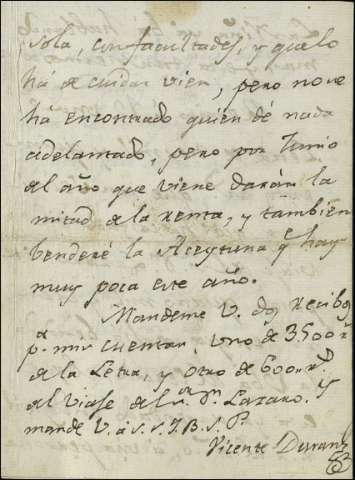 sola, con facultades, y que lo
há de cuidar vien, pero no se
há encontrado quien dé nada
adelantado, pero por Junio
del año que viene darán la
mitad de la renta, y tambien
benderé la Aceytuna q̄ hay
muy poca este año.
Mandeme V. dos recibos
pª mis cuentas, uno de 3.500 rˢ
de la Letra, y otro de 600 rˢ
del viaje del Sʳ Dⁿ Lazaro. Y
mande V. á s. s. Q. B. S. P.
Vicente Duran